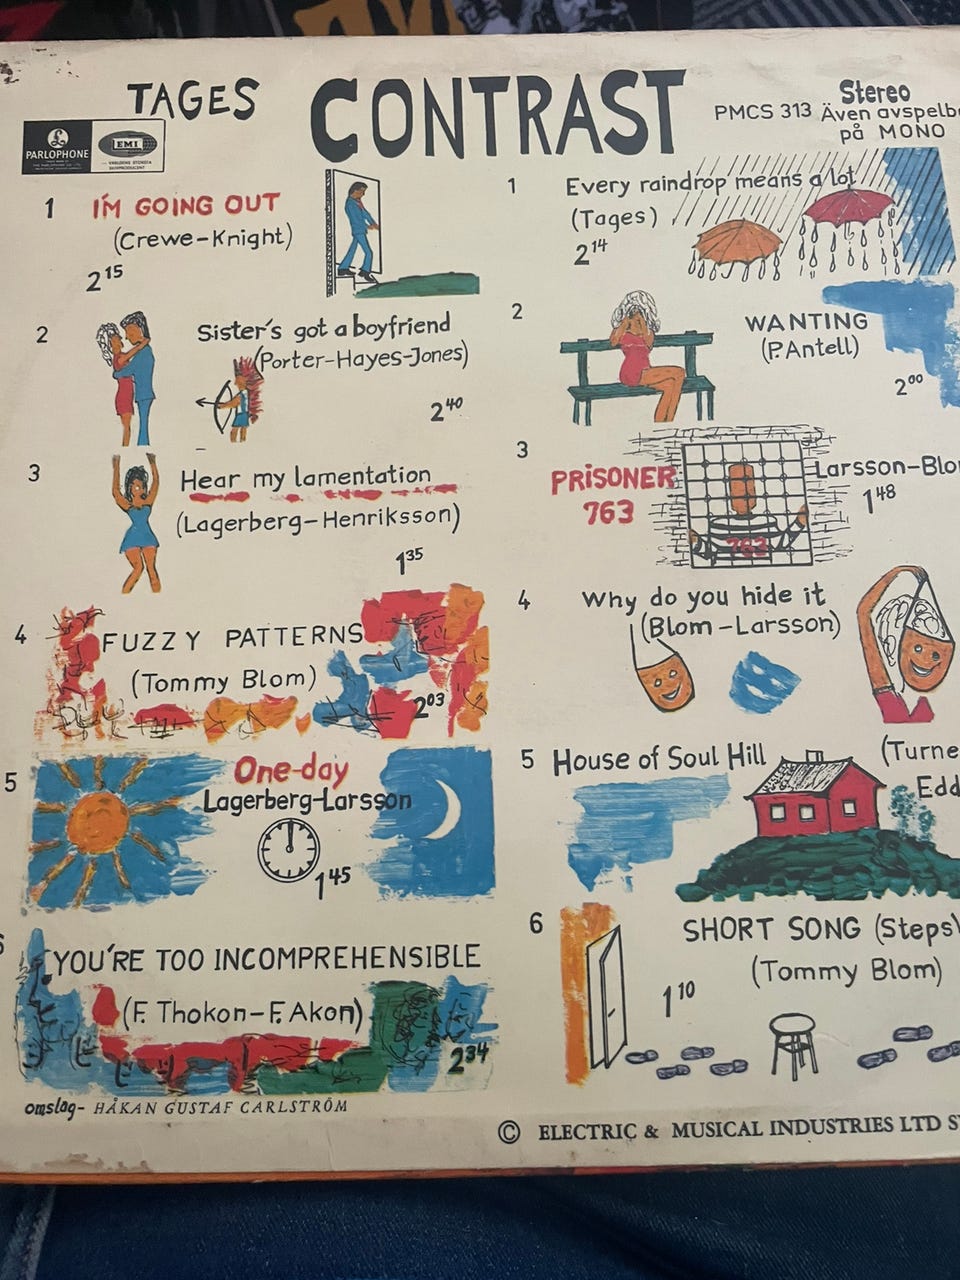 TAGES CONTRAST
Stereo
PMCS 313 Även avspelb
på MONO
PARLOPHONE
EMI
1 I'M GOING OUT
(Crewe-Knight)
2 15
2 Sister's got a boyfriend
(Porter-Hayes-Jones)
2 40
3 Hear my lamentation
(Lagerberg-Henriksson)
1 35
4 FUZZY PATTERNS
(Tommy Blom)
2 03
5 One-day
Lagerberg-Larsson
1 45
6 YOU'RE TOO INCOMPREHENSIBLE
(F. Thokon-F. Akon)
2 34
omslag- HÅKAN GUSTAF CARLSTRÖM
1 Every raindrop means a lot
(Tages)
2 14
2 WANTING
(P. Antell)
2 00
3 PRISONER
763
Larsson-Blo
1 48
763
4 Why do you hide it
(Blom-Larsson)
5 House of Soul Hill
(Turne
Edd
6 SHORT SONG (Steps)
(Tommy Blom)
1 10
© ELECTRIC & MUSICAL INDUSTRIES LTD